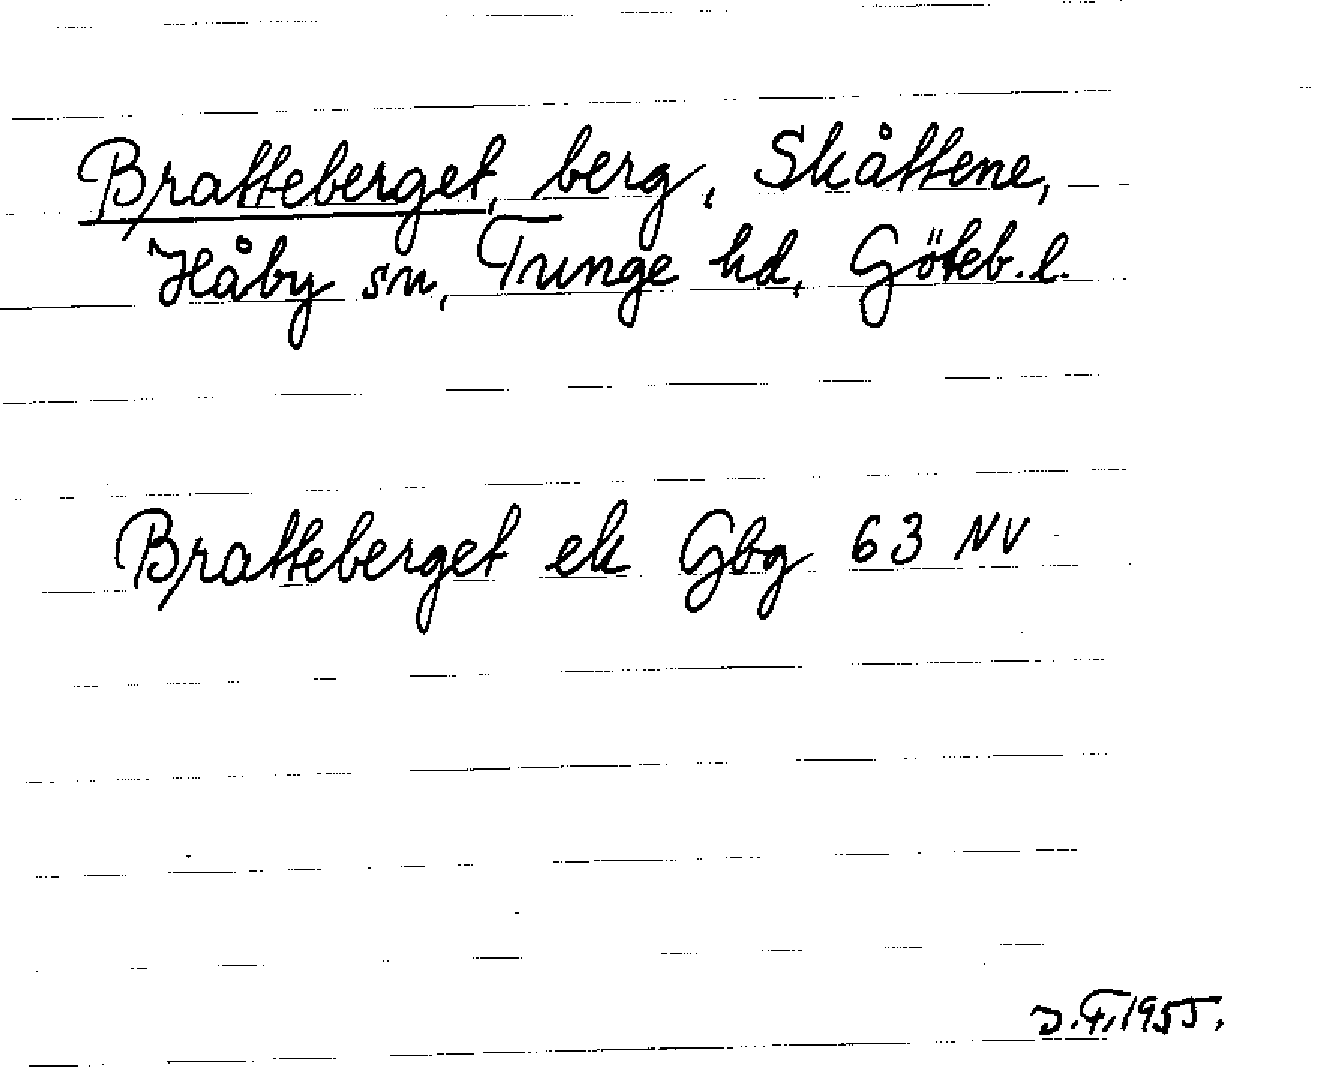 Bratteberget, berg, Skåttene,
Håby sn, Tunge hd, Göteb. l.
Bratteberget ek Gbg 63 NV
J.F. 1955.